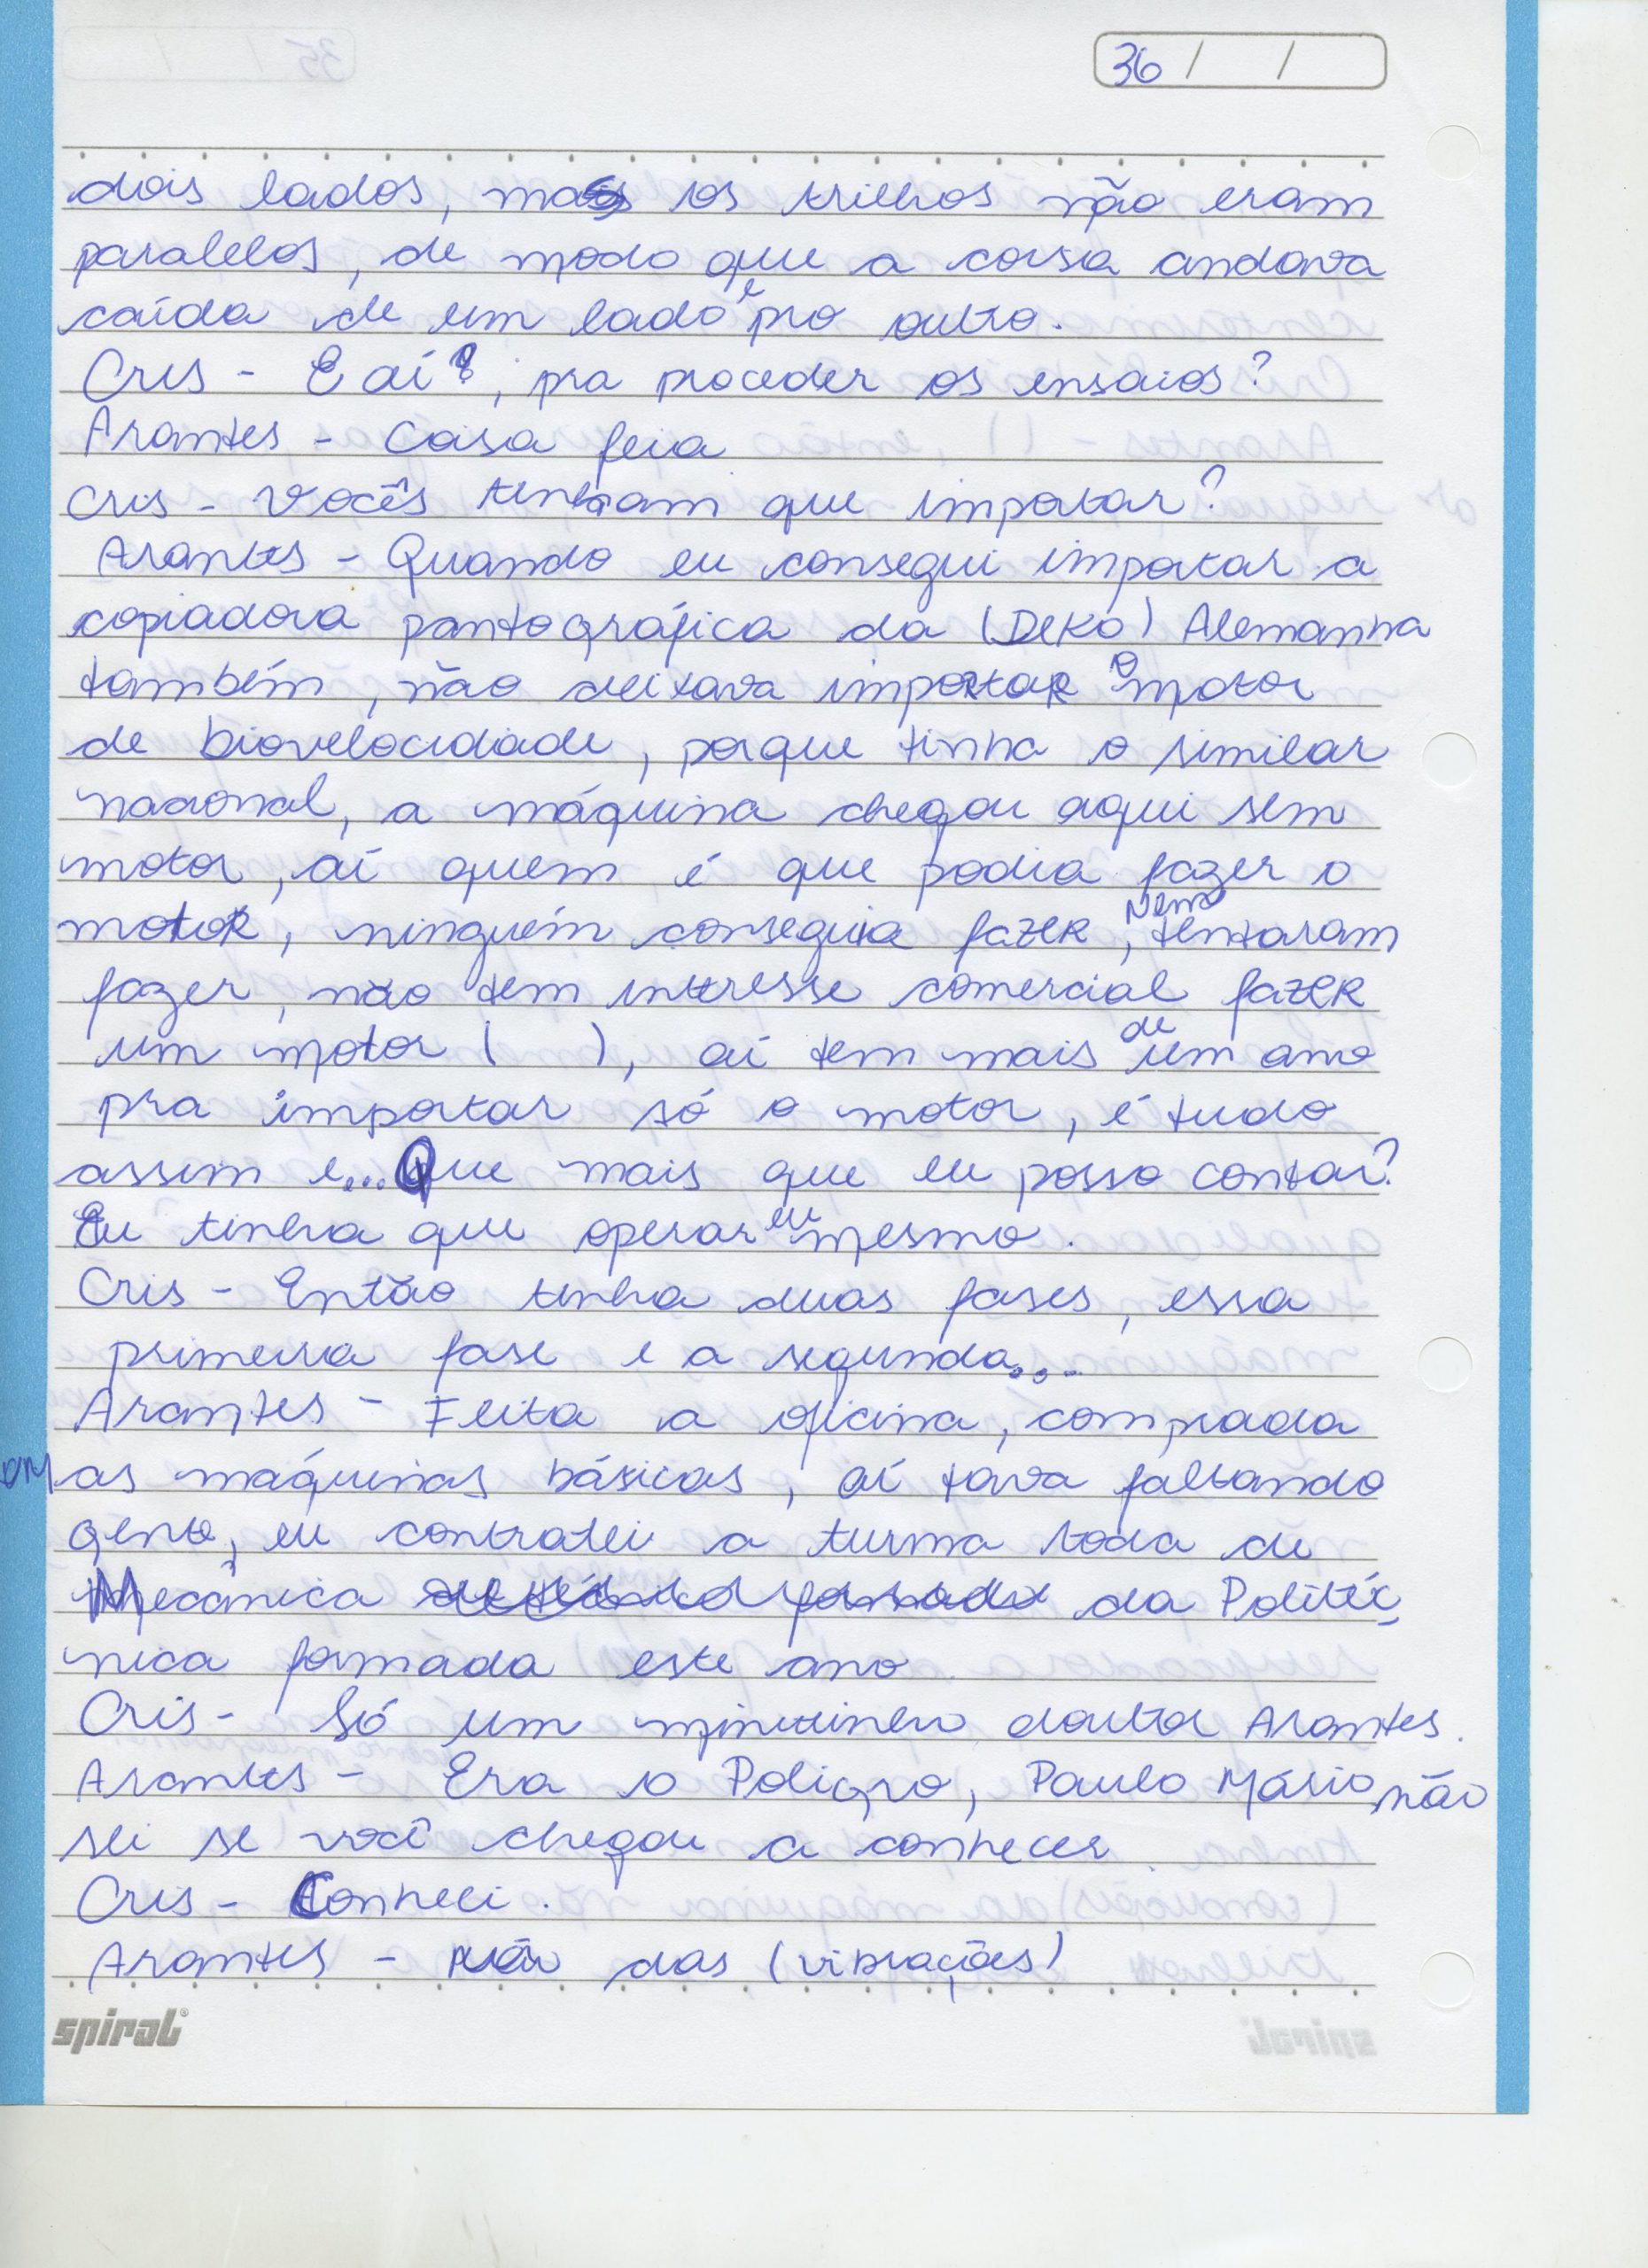 36 / /
dois lados, mas os trilhos não eram
paralelos, de modo que a coisa andava
caída de um lado e pro outro.
Cris - E aí?, pra proceder os ensaios?
Arantes - Coisa feia
Cris - Vocês tinham que importar?
Arantes - Quando eu consegui importar a
copiadora pantográfica da (Deko) Alemanha
também, não deixava importar o motor
de biovelocidade, porque tinha o similar
nacional, a máquina chegou aqui sem
motor, aí quem é que podia fazer o
motor, ninguém conseguia fazer, nem tentaram
fazer, não tem interesse comercial fazer
um motor ( ), aí tem mais de um ano
pra importar só o motor, é tudo
assim e... Que mais que eu posso contar?
Eu tinha que operar eu mesmo.
Cris - Então tinha duas fases, essa
primeira fase e a segunda...
Arantes - Feita a oficina, comprada
as máquinas básicas, aí tava faltando
gente, eu contratei a turma toda de
Mecânica da Politéc
nica formada este ano.
Cris - Só um minutinho doutor Arantes.
Arantes - Era o Poligno, Paulo Mário, não
sei se você chegou a conhecer.
Cris - Conheci.
Arantes - Não das (vibrações)
spiral®